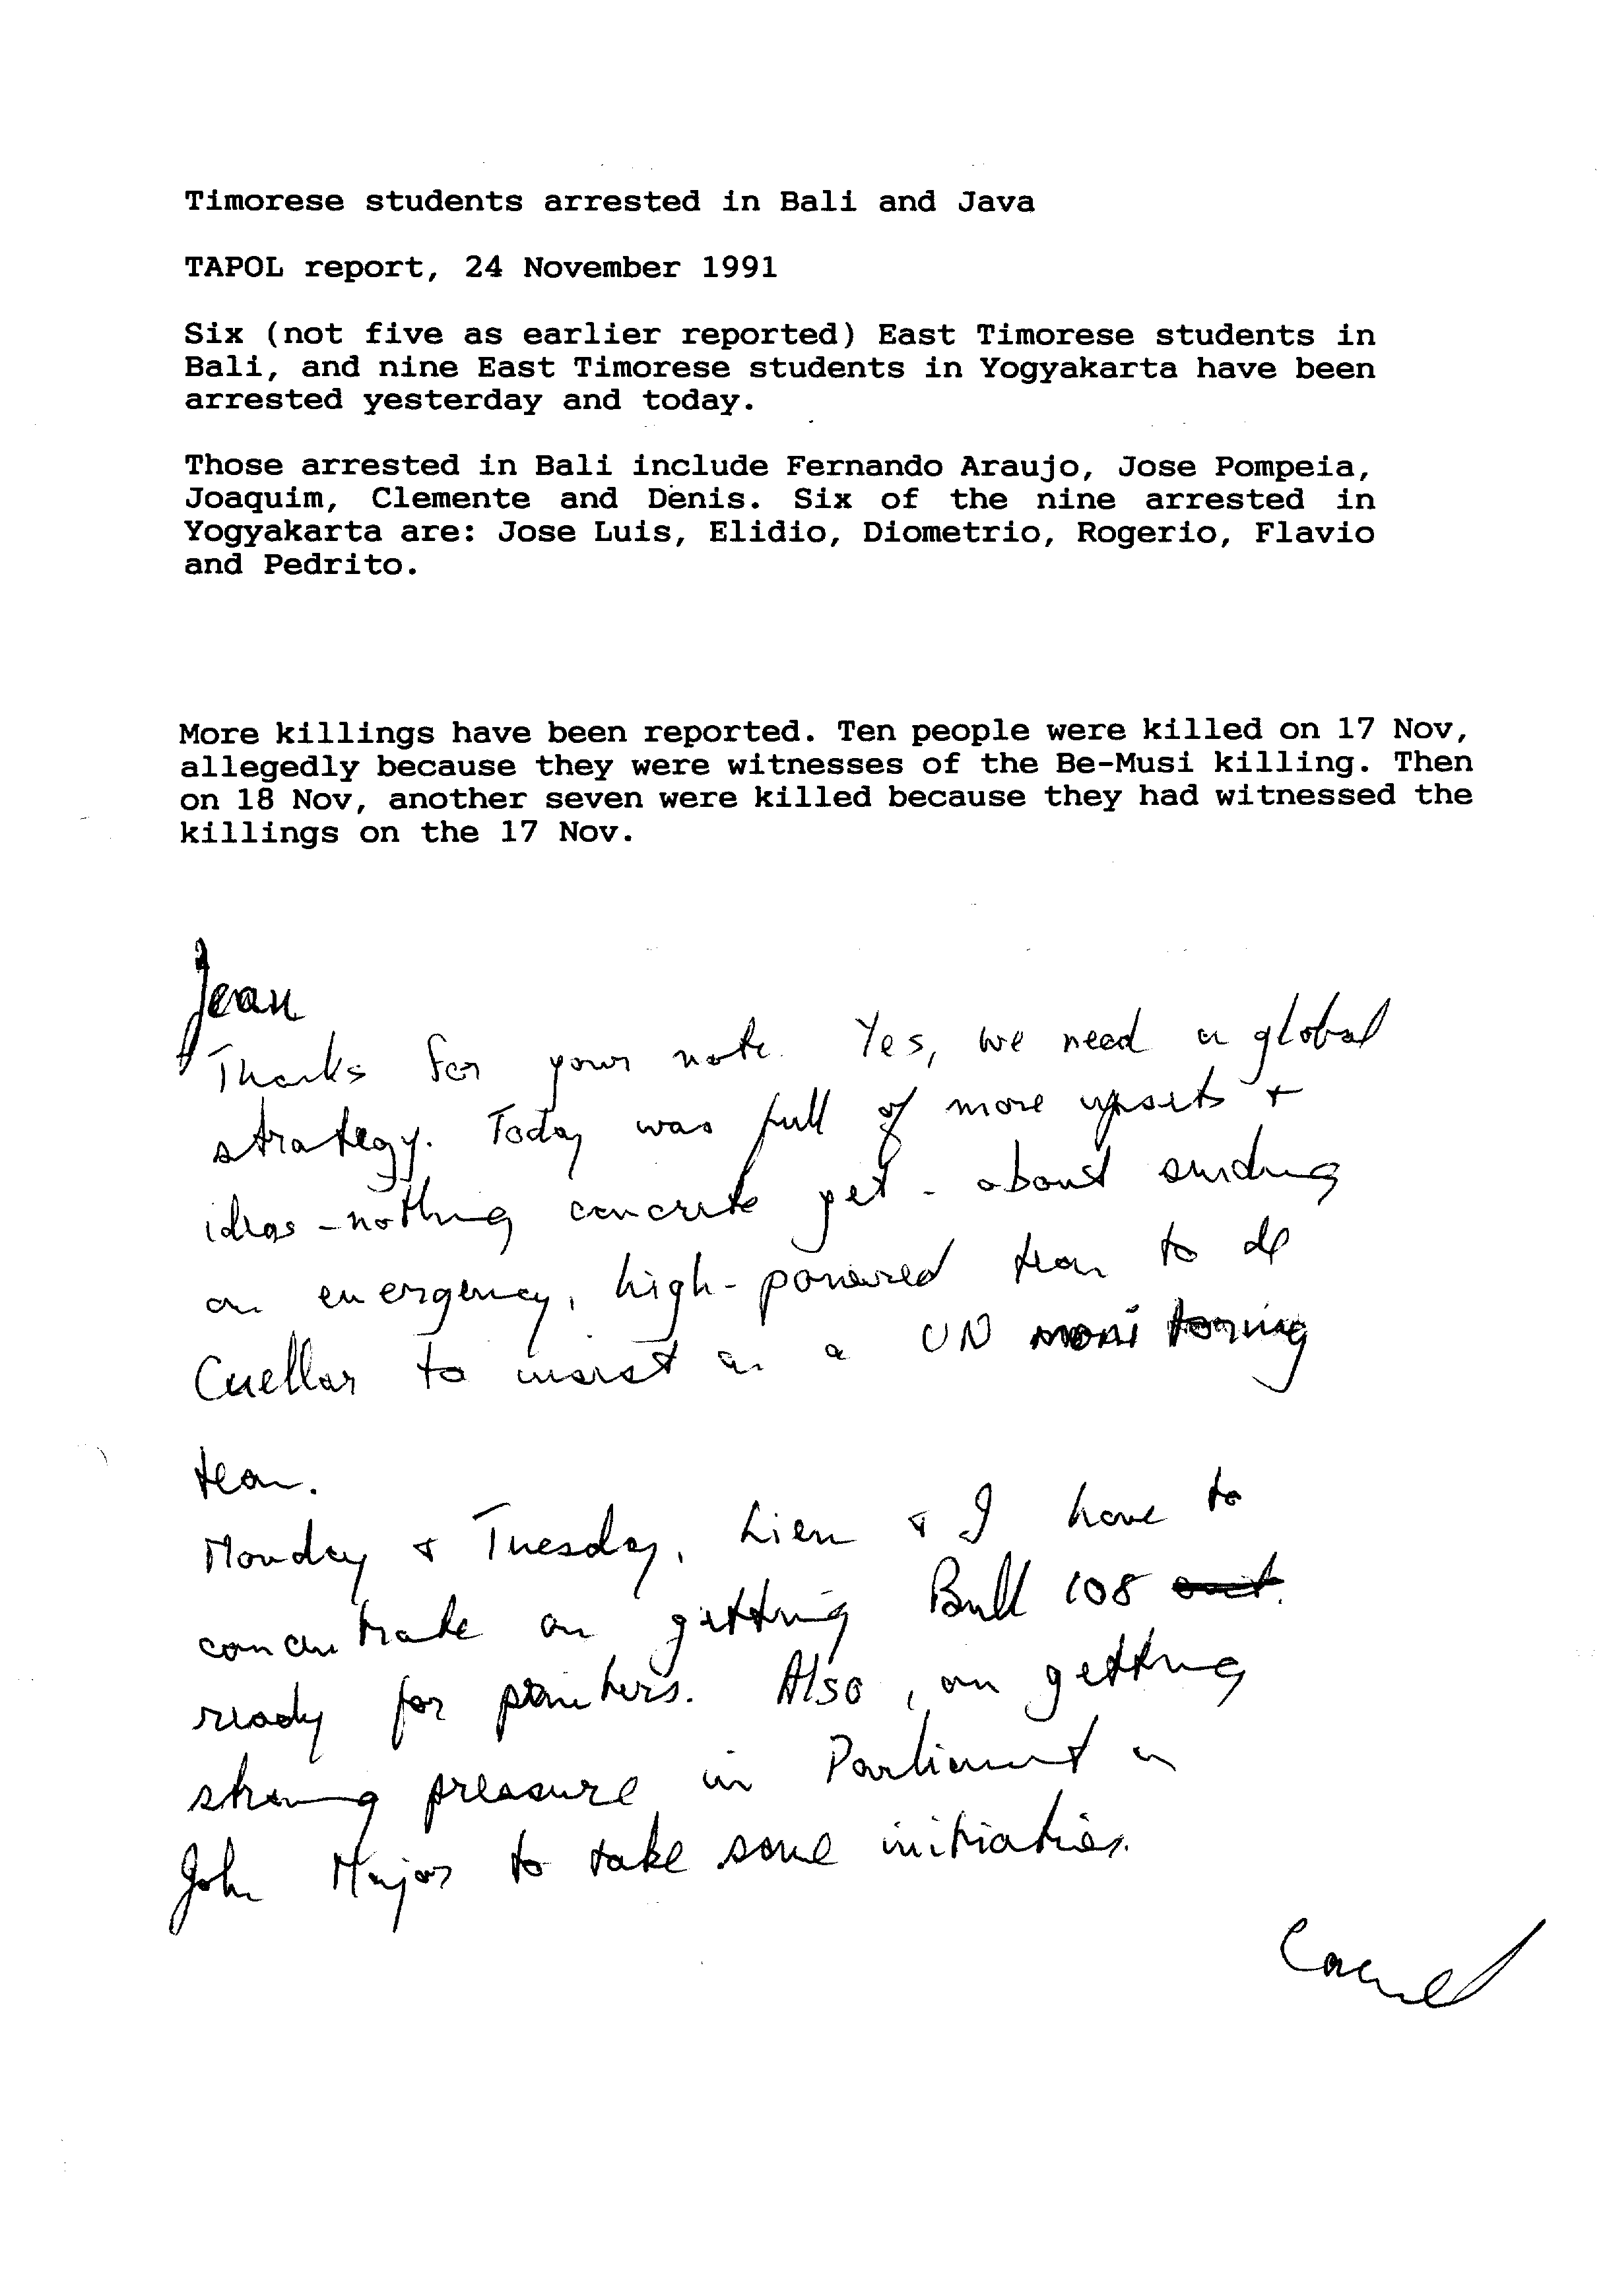 Timorese students arrested in Bali and Java
TAPOL report, 24 November 1991
Six (not five as earlier reported) East Timorese students in
Bali, and nine East Timorese students in Yogyakarta have been
arrested yesterday and today.
Those arrested in Bali include Fernando Araujo, Jose Pompeia,
Joaquim, Clemente and Denis. Six of the nine arrested in
Yogyakarta are: Jose Luis, Elidio, Diometrio, Rogerio, Flavio
and Pedrito.
More killings have been reported. Ten people were killed on 17 Nov,
allegedly because they were witnesses of the Be-Musi killing. Then
on 18 Nov, another seven were killed because they had witnessed the
killings on the 17 Nov.
Jean
Thanks for your note. Yes, we need a global
strategy. Today was full of more upsets +
ideas - nothing concrete yet - about sending
an emergency, high-powered team to de
Cuellar to insist on a UN monitoring
team.
Monday + Tuesday, Liem + I have to
concentrate on getting Bull 108
ready for printers. Also, on getting
strong pressure in Parliament on
John Major to take some initiatives.
Carmel